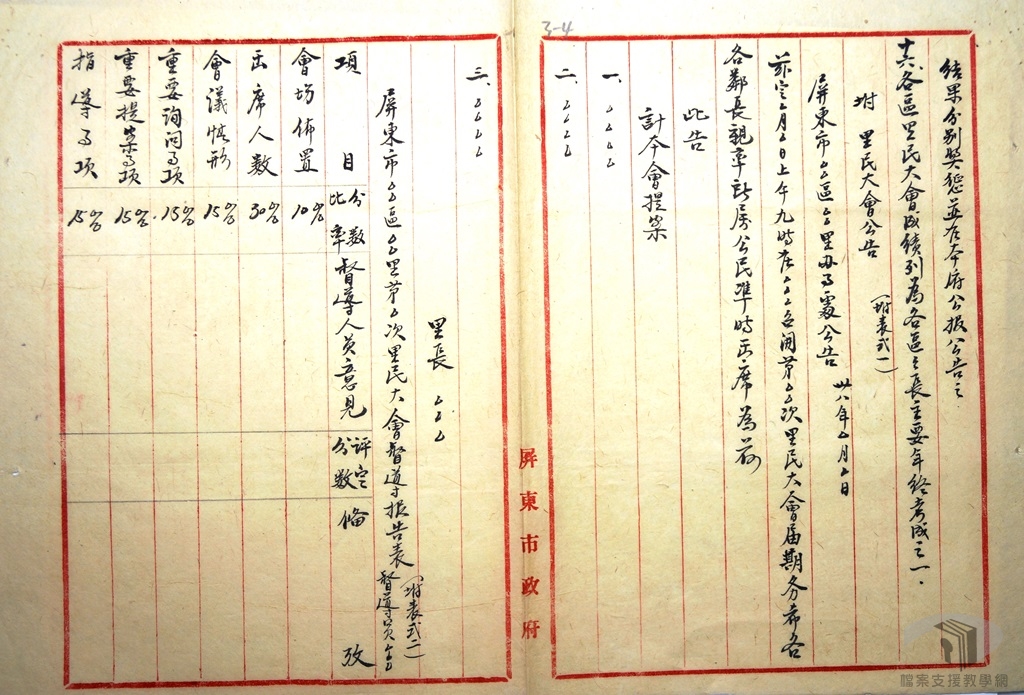 3-4
結果分別獎懲並在本府公报公告之
十六各區里民大會成績列為各區之長主要年終考成之一.
附 里民大會公告 (附表式一)
屏東市△△區△△里办事處公告 卅八年△月△日
茲定△月△日上午九時在△△△召開第△△次里民大會届期务希各
各鄰長親率該房公民準時出席為荷
此告
計今會提案
一、△△△△
二、△△△△
三、△△△△
里長 △△△
屏東市△△區△△里第△次里民大會督導报告表 (附表式二)
督導員△△△
項目 分数比率 督導人員意見 評定分數 備攷
會場佈置 10%
出席人数 30%
會議情形 15%
重要詢问事項 15%
重要提案事項 15%
指導事項 15%
屏東市政府
檔案支援教學網